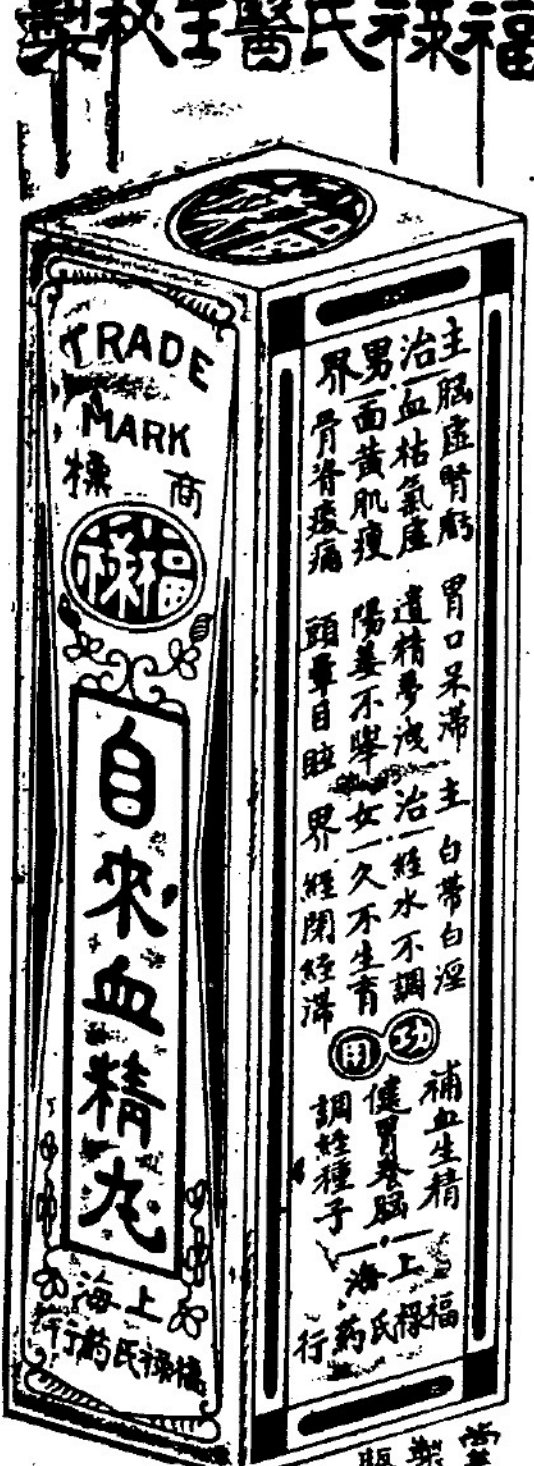 福祿氏醫生秘製
TRADE
MARK
商標
福祿
自來血精丸
上海
福祿氏葯行
主治男界
腦虛腎虧
血枯氣虛
面黃肌瘦
骨脊痠痛
胃口呆滯
遺精夢洩
陽萎不舉
頭暈目眩
主治女界
白帶白淫
經水不調
久不生育
經閉經滯
功用
補血生精
健胃養腦
調經種子
上海
福祿氏葯行